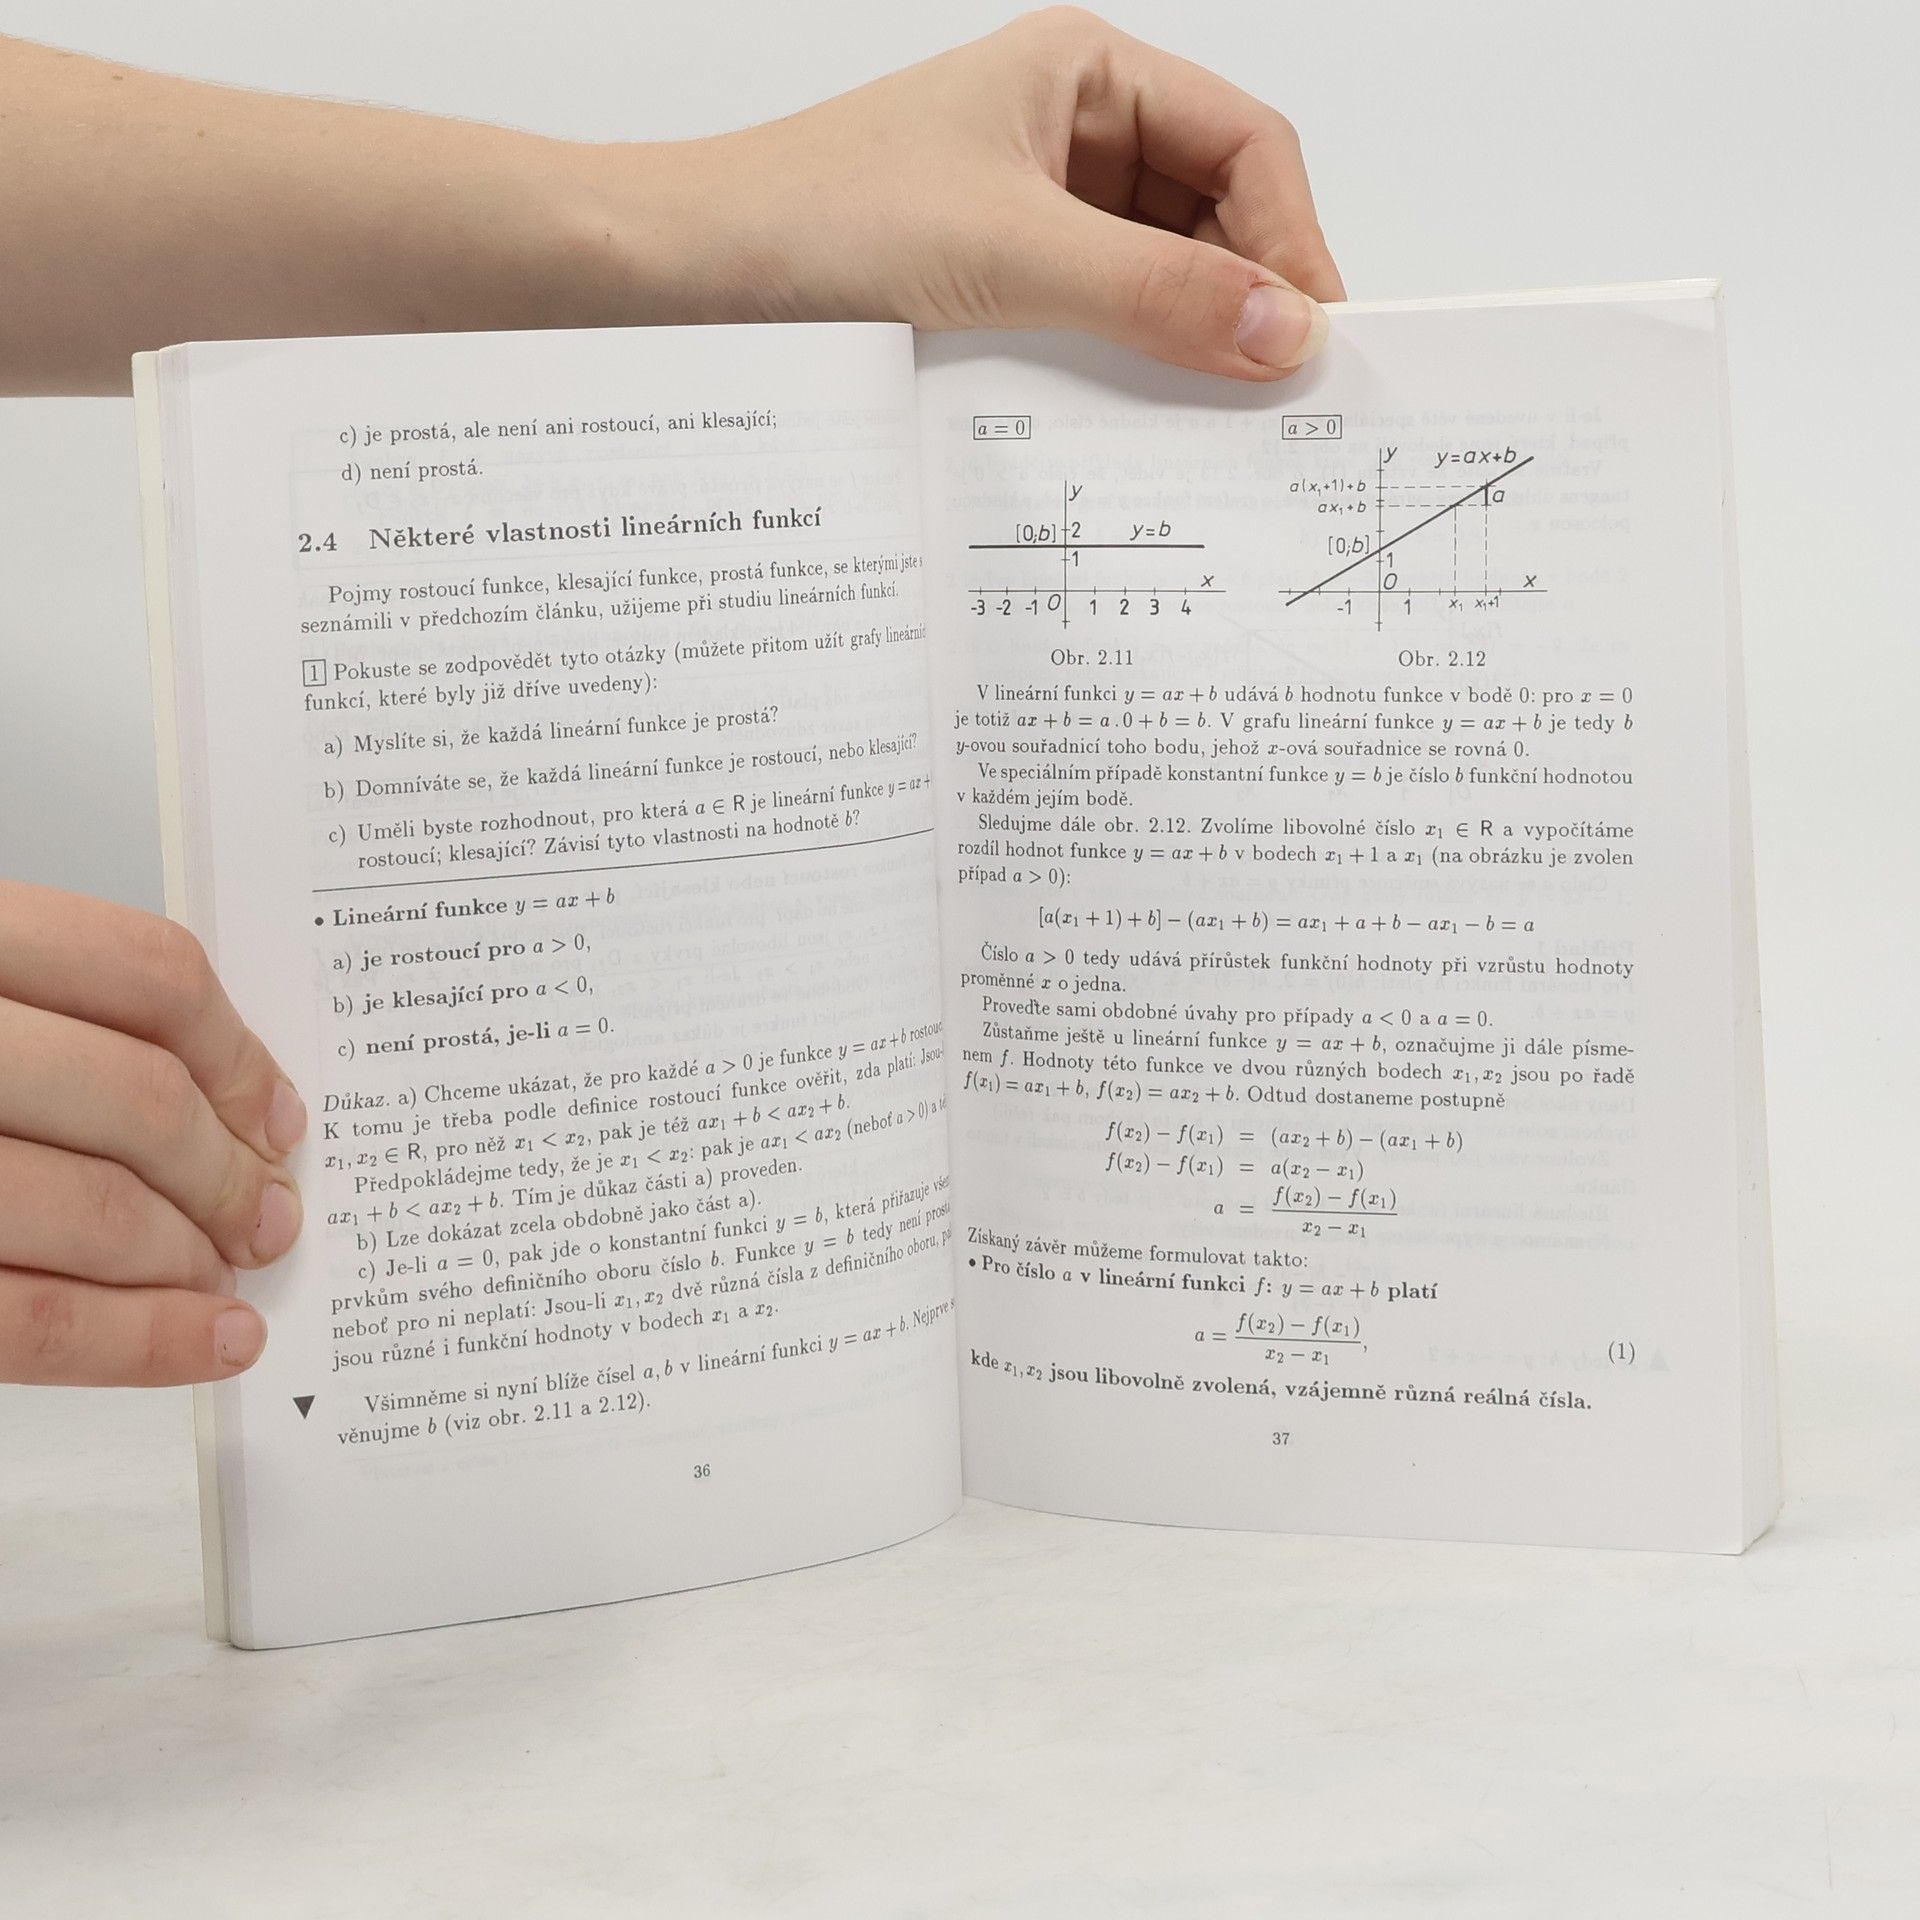 c) je prostá, ale není ani rostoucí, ani klesající;
d) není prostá.
2.4 Některé vlastnosti lineárních funkcí
Pojmy rostoucí funkce, klesající funkce, prostá funkce, se kterými jste s
seznámili v předchozím článku, užijeme při studiu lineárních funkcí.
1 Pokuste se zodpovědět tyto otázky (můžete přitom užít grafy lineární
funkcí, které byly již dříve uvedeny):
a) Myslíte si, že každá lineární funkce je prostá?
b) Domníváte se, že každá lineární funkce je rostoucí, nebo klesající?
c) Uměli byste rozhodnout, pro která a ∈ R je lineární funkce y = ax +
rostoucí; klesající? Závisí tyto vlastnosti na hodnotě b?
• Lineární funkce y = ax + b
a) je rostoucí pro a > 0,
b) je klesající pro a < 0,
c) není prostá, je-li a = 0.
Důkaz. a) Chceme ukázat, že pro každé a > 0 je funkce y = ax + b rostouc
K tomu je třeba podle definice rostoucí funkce ověřit, zda platí: Jsou-
x₁, x₂ ∈ R, pro něž x₁ < x₂, pak je též ax₁ + b < ax₂ + b.
Předpokládejme tedy, že je x₁ < x₂: pak je ax₁ < ax₂ (neboť a > 0) a
ax₁ + b < ax₂ + b. Tím je důkaz části a) proveden.
b) Lze dokázat zcela obdobně jako část a).
c) Je-li a = 0, pak jde o konstantní funkci y = b, která přiřazuje
prvkům svého definičního oboru číslo b. Funkce y = b tedy není
neboť pro ni neplatí: Jsou-li x₁, x₂ dvě různá čísla z definičního oboru,
jsou různé i funkční hodnoty v bodech x₁ a x₂.
▼ Všimněme si nyní blíže čísel a, b v lineární funkci y = ax + b. Nejprve
věnujme b (viz obr. 2.11 a 2.12).
36
a = 0
y
[0;b] 2 y=b
1
x
-3 -2 -1 0 1 2 3 4
Obr. 2.11
a > 0
y y=ax+b
a(x₁+1)+b
a
ax₁+b
[0;b]
1
0 x
-1 1 x₁ x₁+1
Obr. 2.12
V lineární funkci y = ax + b udává b hodnotu funkce v bodě 0: pro x = 0
je totiž ax + b = a . 0 + b = b. V grafu lineární funkce y = ax + b je tedy b
y-ovou souřadnicí toho bodu, jehož x-ová souřadnice se rovná 0.
Ve speciálním případě konstantní funkce y = b je číslo b funkční hodnotou
v každém jejím bodě.
Sledujme dále obr. 2.12. Zvolíme libovolné číslo x₁ ∈ R a vypočítáme
rozdíl hodnot funkce y = ax + b v bodech x₁ + 1 a x₁ (na obrázku je zvolen
případ a > 0):
[a(x₁ + 1) + b] − (ax₁ + b) = ax₁ + a + b − ax₁ − b = a
Číslo a > 0 tedy udává přírůstek funkční hodnoty při vzrůstu hodnoty
proměnné x o jedna.
Proveďte sami obdobné úvahy pro případy a < 0 a a = 0.
Zůstaňme ještě u lineární funkce y = ax + b, označujme ji dále písme-
nem f. Hodnoty této funkce ve dvou různých bodech x₁, x₂ jsou po řadě
f(x₁) = ax₁ + b, f(x₂) = ax₂ + b. Odtud dostaneme postupně
f(x₂) − f(x₁) = (ax₂ + b) − (ax₁ + b)
f(x₂) − f(x₁) = a(x₂ − x₁)
f(x₂) − f(x₁)
a =
x₂ − x₁
Získaný závěr můžeme formulovat takto:
• Pro číslo a v lineární funkci f: y = ax + b platí
f(x₂) − f(x₁)
a = , (1)
x₂ − x₁
kde x₁, x₂ jsou libovolně zvolená, vzájemně různá reálná čísla.
37